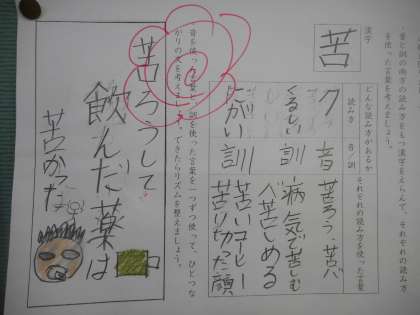 音と訓の両方の読み方をもつ漢字をえらんで、それぞれの読み方
を使った言葉を考えましょう。
漢字
苦
どんな読み方があるか
それぞれの読み方を使った言葉
読み方
音/訓
ク
音
苦ろう
くるしい
訓
病気で苦しむ
苦しめる
にがい
訓
苦いコーヒー
苦りきった顔
音を使った言葉と、訓を使った言葉を一つずつ使って、ひとつな
がりの文を考えましょう。できたらリズムを整えましょう。
苦ろうして
飲んだ薬は
苦かった